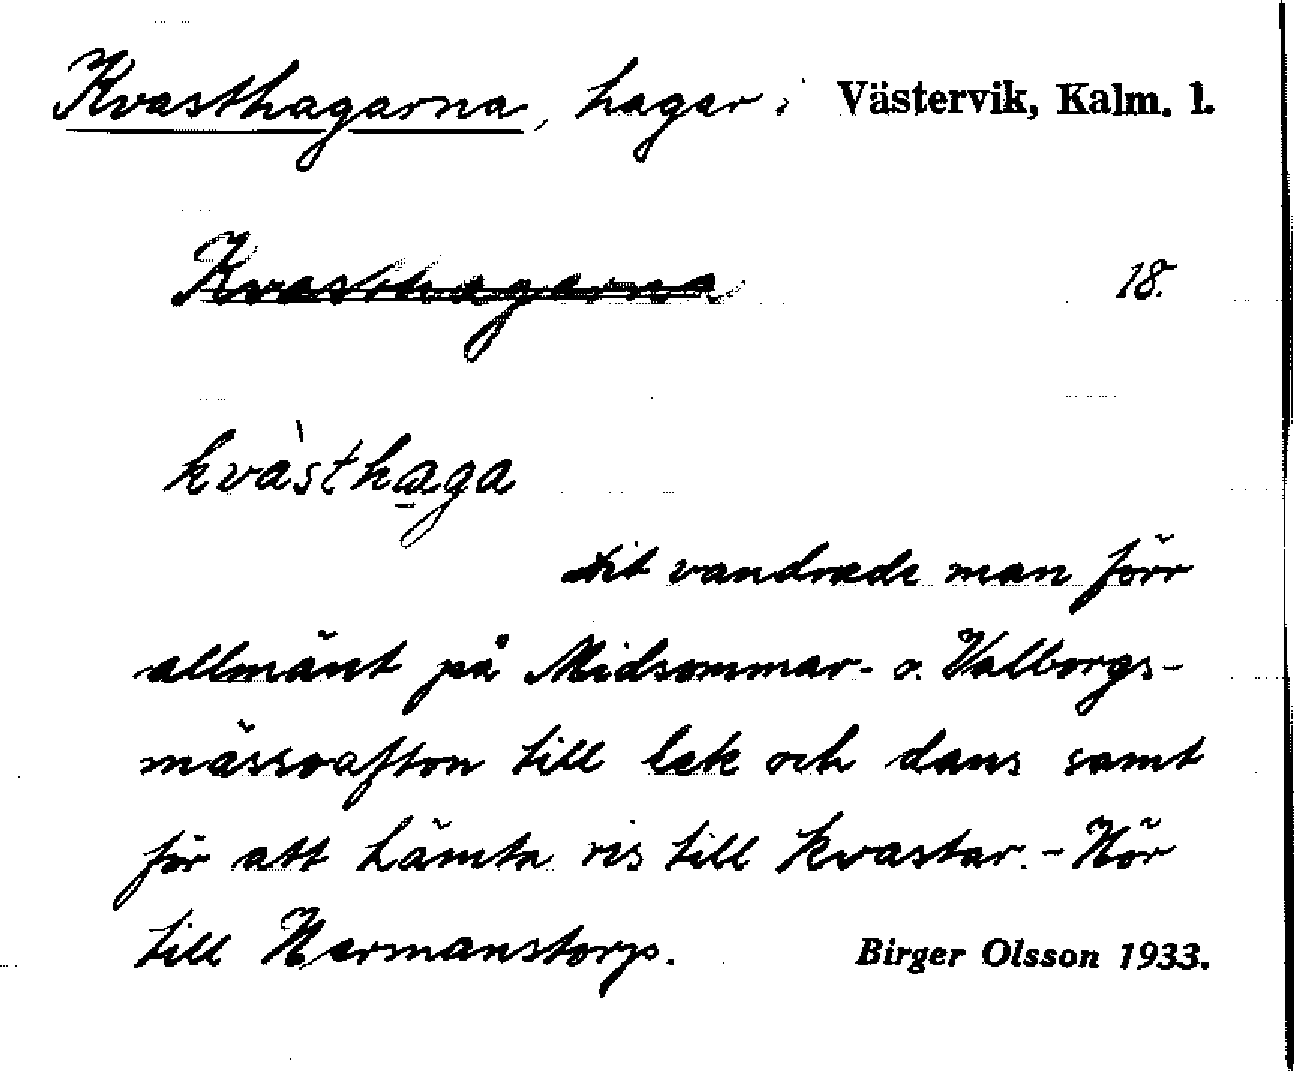 Kvasthagarna, hagar i Västervik, Kalm. l.
Kvasthagarna 18.
kvàsthaga
Dit vandrade man förr
allmänt på Midsommar- o. Valborgs-
mässoafton till lek och dans samt
för att hämta ris till kvastar. - Hör
till Hermanstorp. Birger Olsson 1933.